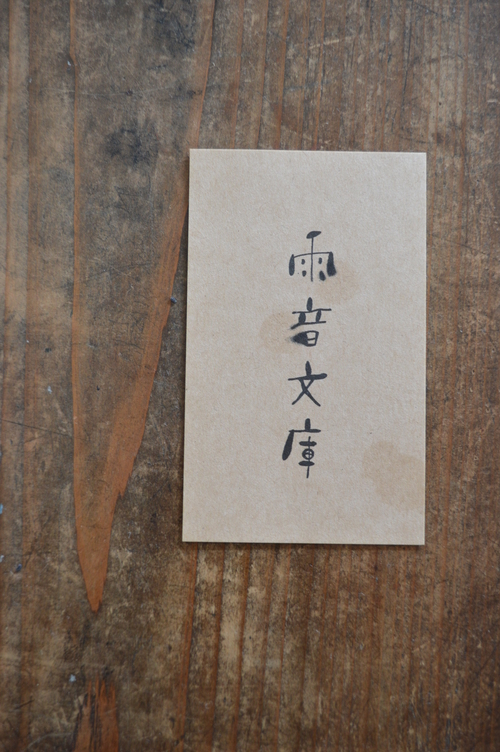 雨音文庫